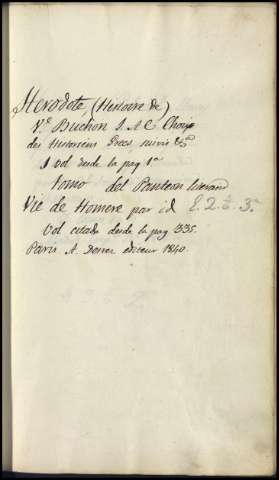 Herodote, (Histoire de)
Vº Buchon J. A. C. Choix
des Historiens Grecs suivis &ª
1 vol desde la pag 1ª
tomo del Panteon literario
Vie de Homere par id E. 2. ª 3ª
Vol citado desde la pag 335.
Paris A. Desrez editeur 1840.